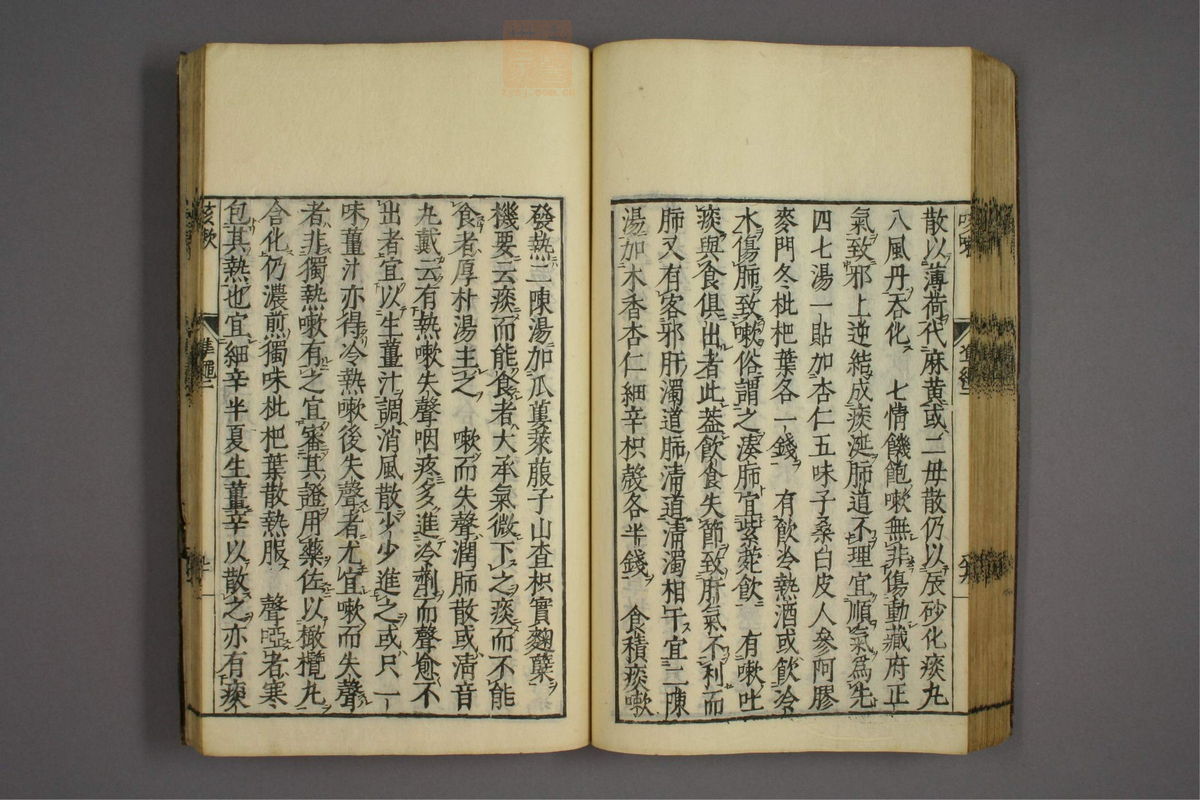 散以薄荷代麻黄或二母散仍以辰砂化痰丸
八風丹吞化　七情饑飽嗽無非傷動藏府正
氣致邪上逆結成痰涎肺道不理宜順氣爲先
四七湯一貼加杏仁五味子桑白皮人參阿膠
麥門冬枇杷葉各一錢　有飲冷熱酒或飲冷
水傷肺致嗽俗謂之湊肺宜紫菀飲　有嗽吐
痰與食俱出者此盖飲食失節致肝氣不利而
肺又有客邪肝濁道肺清道清濁相干宜二陳
湯加木香杏仁細辛枳殼各半錢　食積痰嗽
發熱二陳湯加瓜蔞萊菔子山查枳實麯蘗
機要云痰而能食者大承氣微下之痰而不能
食者厚朴湯主之　嗽而失聲潤肺散或清音
丸戴云有熱嗽失聲咽疼多進冷劑而聲愈不
出者宜以生薑汁調消風散少少進之或只一
味薑汁亦得冷熱嗽後失聲者尤宜嗽而失聲
者非獨熱嗽有之宜審其證用藥佐以橄欖丸
含化仍濃煎獨味枇杷葉散熱服　聲啞者寒
包其熱也宜細辛半夏生薑辛以散之亦有痰
咳嗽
準繩二